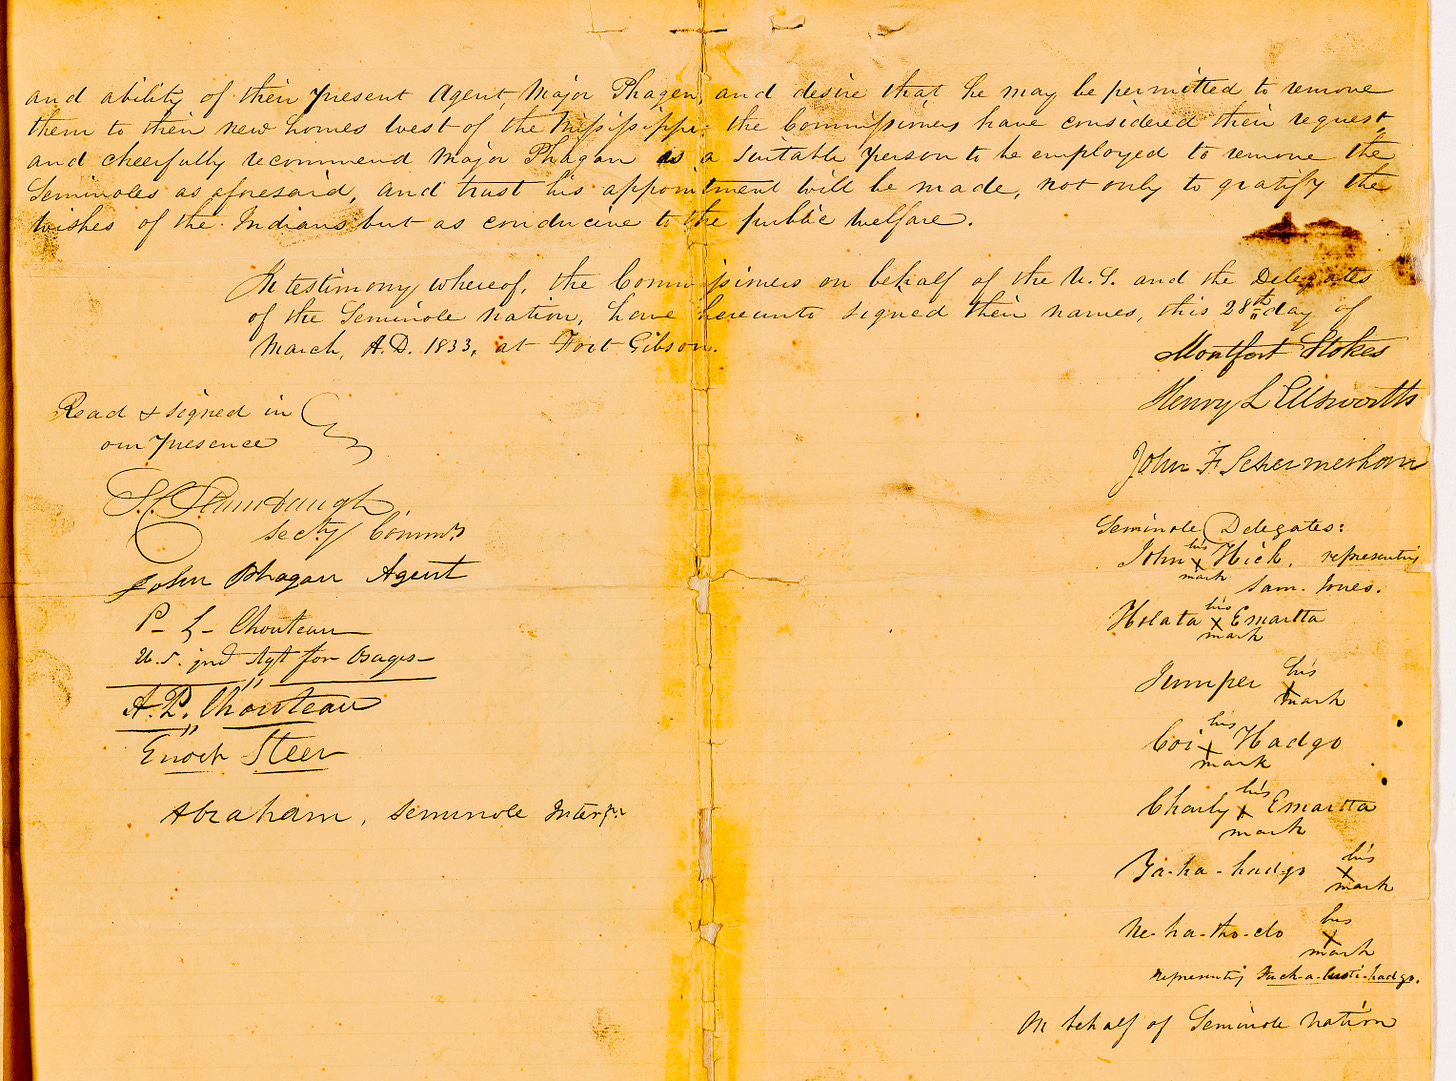 and ability of their present Agent, Major Phagen, and desire that he may be permitted to remove
them to their new homes west of the Missisippi: the Commissioners have considered their request,
and cheerfully recommend Major Phagan as a suitable person to be employed to remove the
Seminoles as aforesaid, and trust his appointment will be made, not only to gratify the
wishes of the Indians but as conducive to the public welfare.
In testimony whereof, the Commissioners on behalf of the U.S. and the Delegates
of the Seminole nation, have hereunto signed their names, this 28th day of
March, A.D. 1833, at Fort Gibson.
Montfort Stokes
Henry L Ellsworth
John F Schermerhorn
Read & signed in
our presence
S.C. Stambaugh
Secty Commrs
John Phagan Agent
P- L- Chouteau
U.S. ind Agt for Osages
A.P. Chouteau
Enoch Steen
Abraham, Seminole Interpr
Seminole Delegates:
John his x mark Hick, representing
Sam. Jones.
Holata his x mark Emartta
Jumper his x mark
Coi his x mark Hadgo
Charly his x mark Emartta
Ya-ha-hadgo his x mark
Ne-ha-tho-clo his x mark
representing Fuch-a-lusti-hadgo.
On behalf of Seminole nation